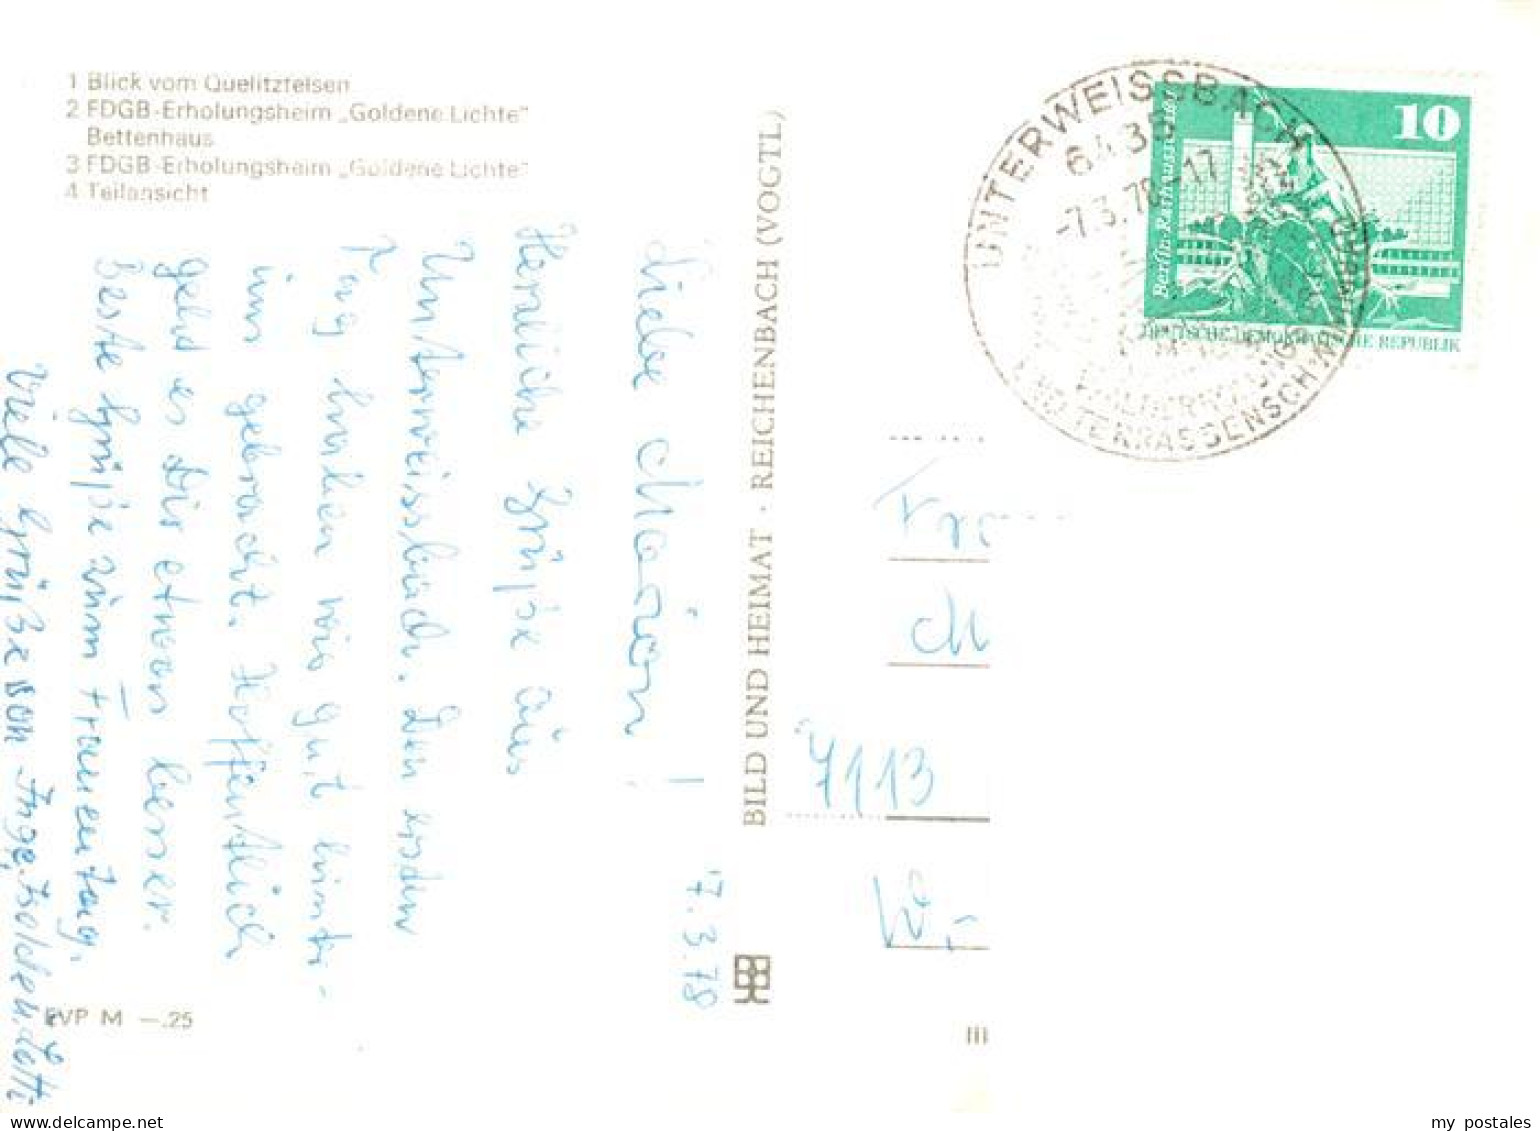 1 Blick vom Quelitzfelsen
2 FDGB-Erholungsheim „Goldene Lichte"
Bettenhaus
3 FDGB-Erholungsheim „Goldene Lichte"
4 Teilansicht
7.3.78
Liebe Marion!
Herzliche Grüße aus
Unterweissbach. Den ersten
Tag haben wir gut hinter
uns gebracht. Hoffentlich
geht es Dir etwas besser.
Beste Grüße zum Frauentag.
Viele Grüße von Inge,
EVP M —.25
BILD UND HEIMAT · REICHENBACH (VOGTL)
UNTERWEISSBACH
643
-7.3.78-17
TERRASSENSCHWIMMBAD
10
Berlin-Rathausstraße
DEUTSCHE DEMOKRATISCHE REPUBLIK
7113
III
my postales